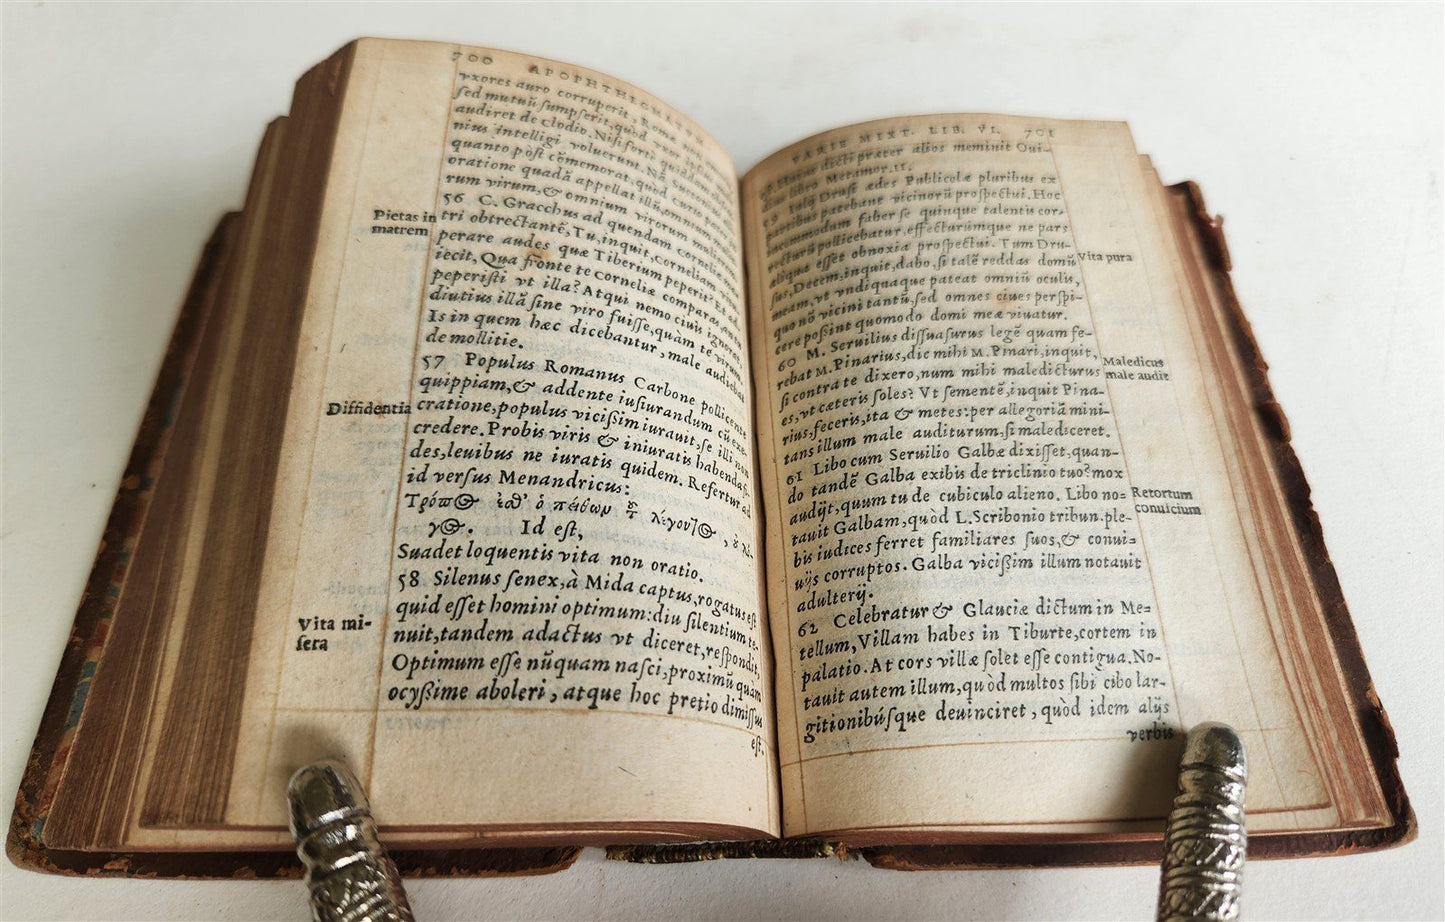 700 APOPHTHEGMATVM
vxores auro corruperit, Romæ
sed mutuũ sumpserit, quod vxor
audiret de Clodio. Nisi fortè quidem
nius intelligi voluerunt. Nã
quanto pòst cõmemorat, quod Curio pater
oratione quadã appellat illũ, omnium
rum virum, & omnium virorum mulierem.
56 C. Gracchus ad quendam Corneliæ ma-
Pietas in matrem
tri obtrectantẽ, Tu, inquit, Corneliam
perare audes quæ Tiberium peperit? Et ad-
iecit, Qua frõnte te Corneliæ comparas,
peperisti vt illa? Atqui nemo ciuis ignorat,
diutius illã sine viro fuisse, quàm te virum.
Is in quem hæc dicebantur, male audiebat
de mollitie.
57 Populus Romanus Carbone pollicente
quippiam, & addente iusiurandum cũ exe-
Diffidentia
cratione, populus vicißim iurauit, se illi non
credere. Probis viris & iniuratis habenda fi-
des, leuibus ne iuratis quidem. Refertur ad
id versus Menandricus:
Τρόπος ἐσθ' ὁ πείθων τ λέγοντος, ὐ λό-
γος. Id est,
Suadet loquentis vita non oratio.
58 Silenus senex, à Mida captus, rogatus est
quid esset homini optimum: diu silentium te-
Vita mi-
sera
nuit, tandem adactus vt diceret, respondit,
Optimum esse nũquam nasci, proximũ quàm
ocyßime aboleri, atque hoc pretio dimissus
est.
VARIE MIXT. LIB. VI. 701
Huius dicti præter alios meminit Oui-
dius libro Metamor. 11.
59 Iulij Drusi ædes Publicolæ pluribus ex
partibus patebant vicinorũ prospectui. Hoc
incommodum faber se quinque talentis cor-
recturũ pollicebatur, effecturũmque ne pars
aliqua esset obnoxia prospectui. Tum Dru-
Vita pura
sus, Decem, inquit, dabo, si talẽ reddas domũ
meam, vt vndiquaque pateat omniũ oculis,
quo nõ vicini tantũ, sed omnes ciues perspi-
cere poßint quomodo domi meæ viuatur.
60 M. Seruilius dissuasurus legẽ quam fe-
rebat M. Pinarius, dic mihi M. Pinari, inquit,
Maledicus
male audit
si contra te dixero, num mihi maledicturus
es, vt cæteris soles? Vt sementẽ, inquit Pina-
rius, feceris, ita & metes: per allegoriã mini-
tans illum male auditurum, si malediceret.
61 Libo cum Seruilio Galbæ dixisset, quan-
do tandẽ Galba exibis de triclinio tuo? mox
Retortum
conuicium
audijt, quum tu de cubiculo alieno. Libo no-
tauit Galbam, quòd L. Scribonio tribun. ple-
bis iudices ferret familiares suos, & conui-
uijs corruptos. Galba vicißim illum notauit
adulterij.
62 Celebratur & Glauciæ dictum in Me-
tellum, Villam habes in Tiburte, cortem in
palatio. At cors villæ solet esse contigua. No-
tauit autem illum, quòd multos sibi cibo lar-
gitionibúsque deuinciret, quòd idem alijs
verbis